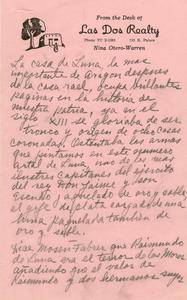 From the Desk of
Las Dos Realty
Nina Otero-Warren
La casa de Luna, la mas
importante de Aragon despues
de la casa real, ocupa brillantes
paginas en la historia de
nuestra patria, ya en el
siglo XIII se gloriaba de ser
tronco y origen de ocho casas
coronadas. Ostentaba las armas
que pintamos en este
Artal de Luna, uno de los mas
ilustres capitanes del ejército
del rey Don Jaime y son
Escudo jaquelado de oro y sable
el gefe de plata cargado de una
luna jaquelada tambien de
oro y sable.
Dice Mosen Febrer que Raimundo
de Luna era el terror de los Moros
añadiendo que el valor de
Raimundo y dos hermanos suyos